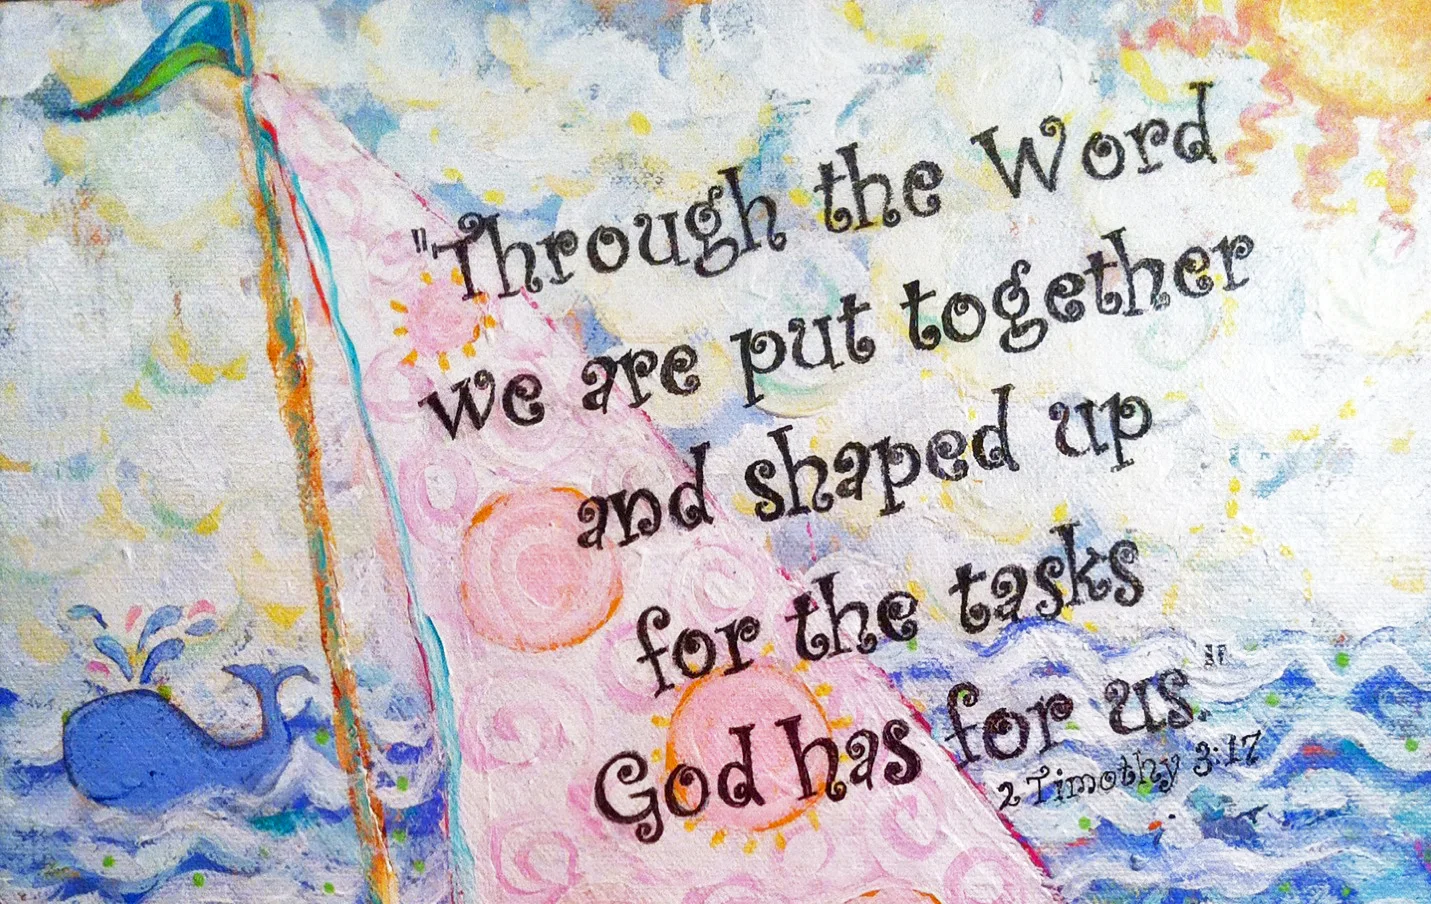 "Through the Word
we are put together
and shaped up
for the tasks
God has for us."
2 Timothy 3:17